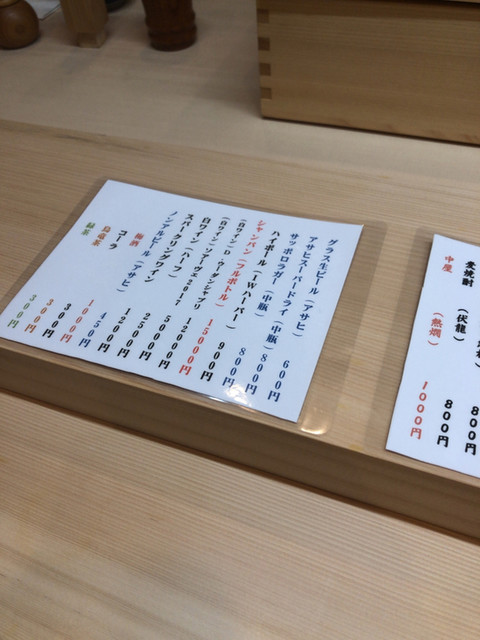 グラス生ビール（アサヒ） 600円
アサヒスーパードライ（中瓶） 800円
サッポロラガー（中瓶） 800円
ハイボール（I.Wハーパー） 900円
シャンパン（フルボトル） 15000円
（白ワイン）D・ウーダンシャブリ 12000円
白ワイン・ソアーヴェ2017 5000円
スパークリングワイン（ハーフ） 2500円
1200円
ノンアルビール（アサヒ） 450円
梅酒 1000円
コーラ 300円
烏龍茶 300円
緑茶 300円
麦焼酎
800円
（伏龍） 800円
中屋（熱燗） 1000円